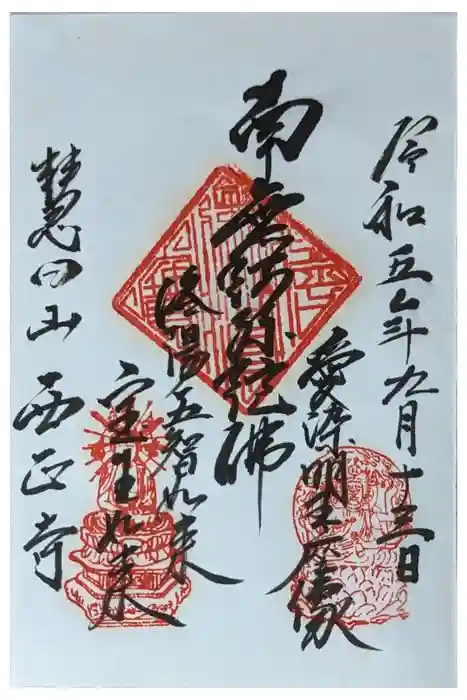 令和五年九月十三日
愛染明王尊像
南無阿弥陀佛
洛陽五智如来
宝生如来
慧日山 西正寺